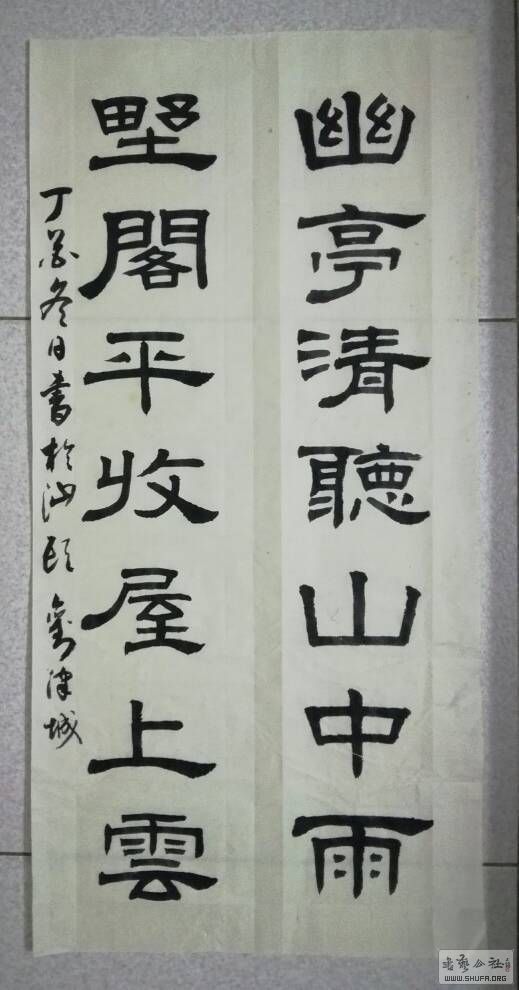 幽亭清聽山中雨
墅閣平收屋上雲
丁酉冬日書於 劉津城
書藝公社
WWW.SHUFA.ORG